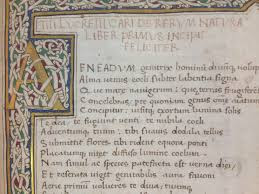 TITI LVCRETII CARI DE RERVM NATVRA
LIBER PRIMVS INCIPIT
FELICITER
AENEADVM genitrix hominũ diuũq, uoluptas
Alma uenus coeli subter labentia signa
Que mare nauigerum: que terras frugiferentes
Concelebras, per quoniam genus omne animantum
Concipitur: uisitq, exortum lumina solis:
Te dea, te fugiunt uenti: te nubila coeli
Aduentumq, tuum: tibi suauis dedala tellus
Submittit flores: tibi rident equora ponti
Placatumq, nitet diffuso lumine coelum.
Nam simul ac species patefacta est uerna diei,
Et reserata uiget genitabilis aura fauoni
Aerie primũ uolucres te diua, tuumq,